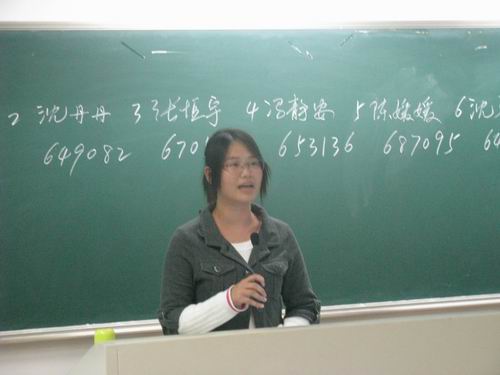 2 沈丹丹 3 张恒宇 4 冯静安 5 陈媛媛 6 沈
649082 670 653136 687095 64